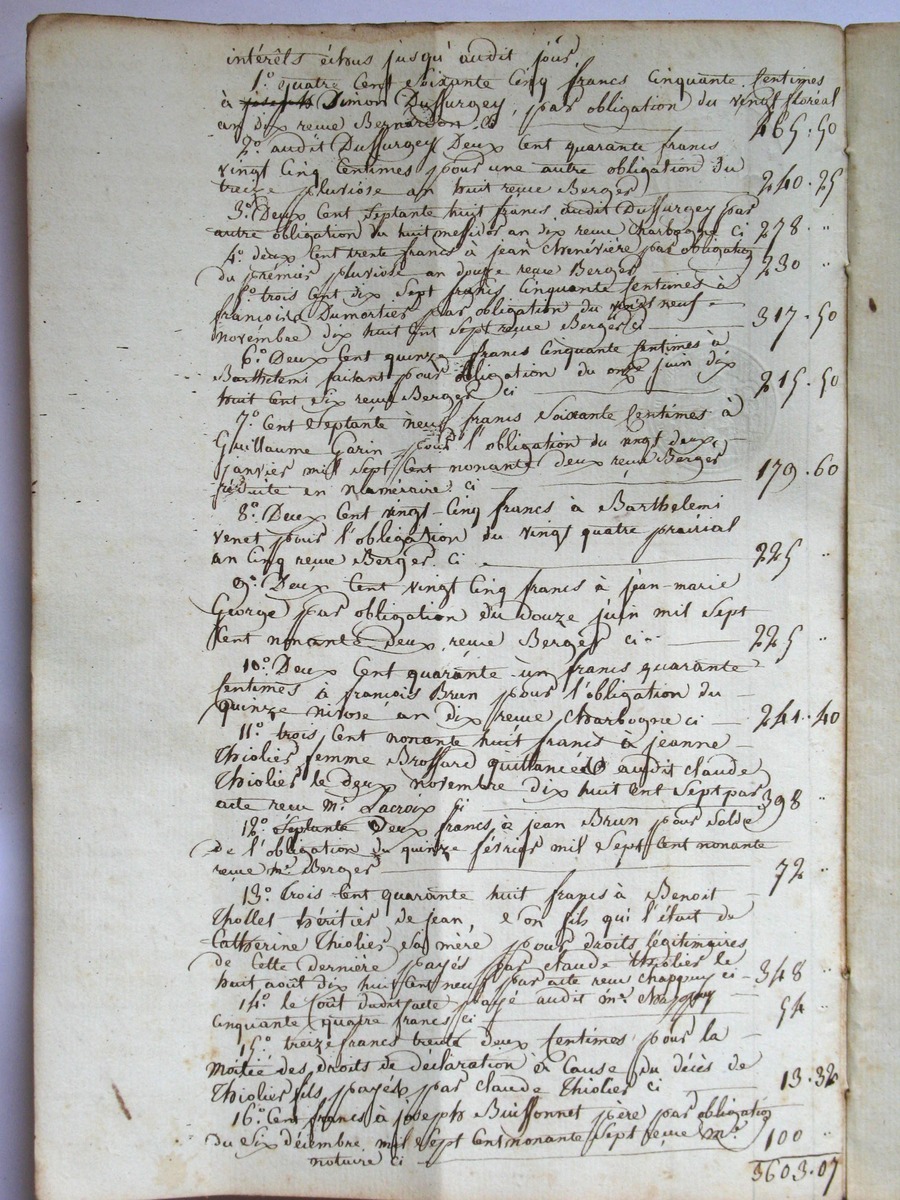 intérêts échus jusqu'audit jour
1.° quatre Cent Soixante Cinq francs Cinquante Centimes
à joseph Simon Dussurgey, par obligation du vingt floréal
an dix reçue Bernardon. Ci 465.50
2.° audit Dussurgey Deux Cent quarante francs
vingt Cinq Centimes pour une autre obligation du
treize pluviôse an huit reçue Berger 240.25
3.° Deux Cent Septante huit francs audit Dussurgey par
autre obligation du huit messidor an dix reçue Charbogne Ci 278 "
4.° deux Cent trente francs à jean Chenevière par obligation
du premier pluviose an douze reçue Berger 230 "
5.° trois Cent dix Sept francs Cinquante Centimes à
françois Dumortier par obligation du neuf
novembre dix huit Cent Sept reçue Berger Ci 317.50
6.° Deux Cent quinze francs Cinquante Centimes à
Barthelemi faisant pour obligation du onze juin dix
huit Cent Six reçue Berger Ci 215.50
7.° Cent Septante neuf francs Soixante Centimes à
Guillaume Garin pour l'obligation du vingt deux
janvier mil Sept Cent nonante deux reçue Berger
réduite en numéraire Ci 179.60
8.° Deux Cent vingt-Cinq francs à Barthelemi
Venet pour l'obligation du vingt quatre prairial
an Cinq reçue Berger. Ci 225 "
9.° Deux Cent vingt Cinq francs à jean-marie
George par obligation du douze juin mil Sept
Cent nonante Deux, reçue Berger Ci 225 "
10.° Deux Cent quarante-un francs quarante
Centimes à françois Brun pour l'obligation du
quinze nivose an dix reçue Charbogne Ci 241.40
11.° trois Cent nonante huit francs à jeanne
Thiolier femme Brossard quittancés audit Claude
Thiolier le deux novembre dix huit Cent Sept par
acte reçu m.e Lacroix Ci 398 "
12.° Septante Deux francs à jean Brun pour Solde
de l'obligation du quinze février mil Sept Cent nonante
reçue m.e Berger 72 "
13.° Trois Cent quarante huit francs à Benoit
Thollet héritier de jean, Son fils qui l'était de
Catherine Thiolier Sa mère pour droits légitimaires
de Cette dernière payés par Claude Thiolier le
huit août dix huit Cent neuf par acte reçu Chappuy Ci 348 "
14.° le Coût dudit acte payé audit m.e Chappuy
Cinquante quatre francs Ci 54 "
15.° treize francs trente deux Centimes pour la
moitié des droits de déclaration à Cause du décès de
Thiolier fils payés par Claude Thiolier Ci 13.32
16.° Cent francs à joseph Buissonnet père par obligation
du Six décembre mil Sept Cent nonante Sept reçue m.e 100 "
notaire Ci
3603.07